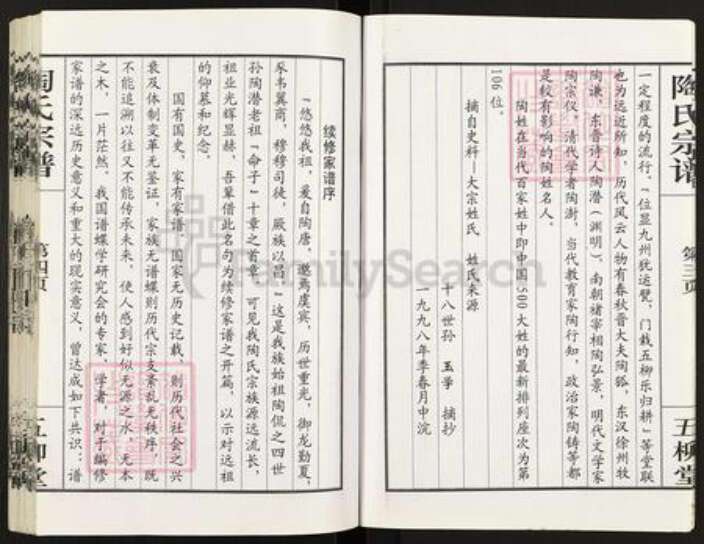 陶氏宗谱
第三页
五柳堂
一定程度的流行。“位显九州犹运甓，门栽五柳乐归耕”等堂联
也为远近所知。历代风云人物有春秋晋大夫陶狐，东汉徐州牧
陶谦，东晋诗人陶潜（渊明），南朝褚宰相陶弘景，明代文学家
陶宗仪，清代学者陶澍，当代教育家陶行知，政治家陶铸等都
是较有影响的陶姓名人。
陶姓在当代百家姓中即中国500大姓的最新排列座次为第
106位。
摘自史料—大宗姓氏 姓氏来源
十八世孙 玉华 摘抄
一九九八年季春月中浣
续修家谱序
“悠悠我祖，爰自陶唐。邈焉虞宾，历世重光，御龙勤夏，
豕韦翼商，穆穆司徒，厥族以昌。”这是我族始祖陶侃之四世
孙陶潜老祖“命子”十章之首章，可见我陶氏宗族源远流长，
祖业光辉显赫，吾辈借此名句为续修家谱之开篇，以示对远祖
的仰慕和纪念。
国有国史，家有家谱，国家无历史记载，则历代社会之兴
衰及体制变革无鉴证，家族无谱牒则历代宗支紊乱无秩序，既
不能追溯以往又不能传承未来，使人感到好似无源之水，无本
之木，一片茫然。我国谱蝶学研究会的专家，学者，对于编修
家谱的深远历史意义和重大的现实意义，曾达成如下共识：谱
陶氏宗谱
第四页
五柳堂
FamilySearch